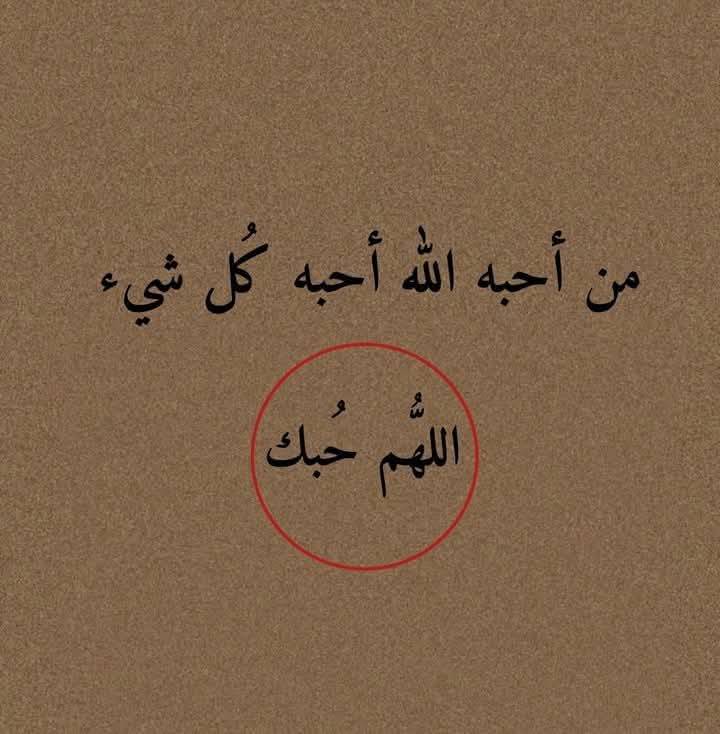 من أحبه الله أحبه كُل شيء
اللهُّم حُبك